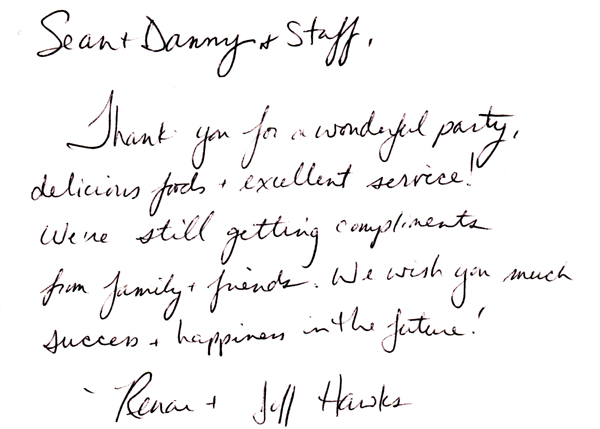 Sean + Danny + Staff,
Thank you for a wonderful party,
delicious foods + excellent service!
We're still getting compliments
from family + friends. We wish you much
success + happiness in the future!
+ Jeff Hawks